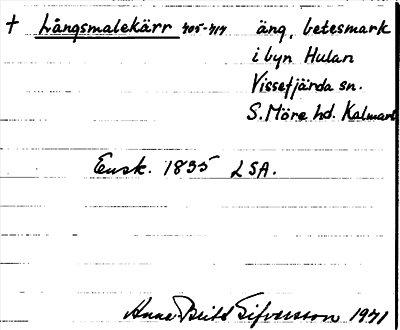 † Långsmalekärr 405-414 äng, betesmark
i byn Hulan
Vissefjärda sn.
S. Möre hd. Kalmar
Ensk. 1835 LSA.
Anna-Britt Sifversson 1971